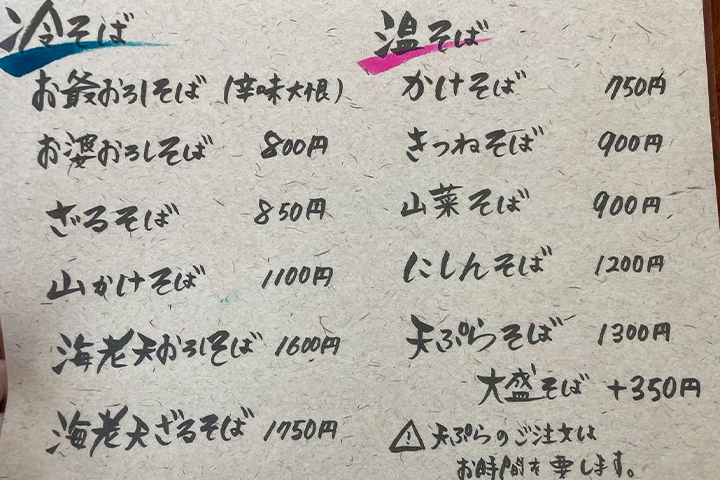 冷そば
お爺おろしそば (辛味大根)
お婆おろしそば 800円
ざるそば 850円
山かけそば 1100円
海老天おろしそば 1600円
海老天ざるそば 1750円
温そば
かけそば 750円
きつねそば 900円
山菜そば 900円
にしんそば 1200円
天ぷらそば 1300円
大盛そば +350円
⚠ 天ぷらのご注文は
お時間を要します。